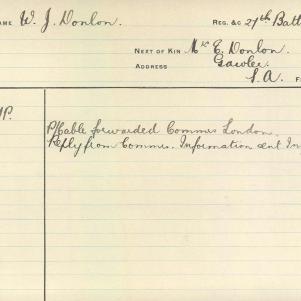 NAME W. J. Donlon REG. &C 27th Batt
NEXT OF KIN Mr E. Donlon.
ADDRESS Gawler.
S. A.
P/Cable forwarded Commrs London.
Reply from Commrs. Information sent In